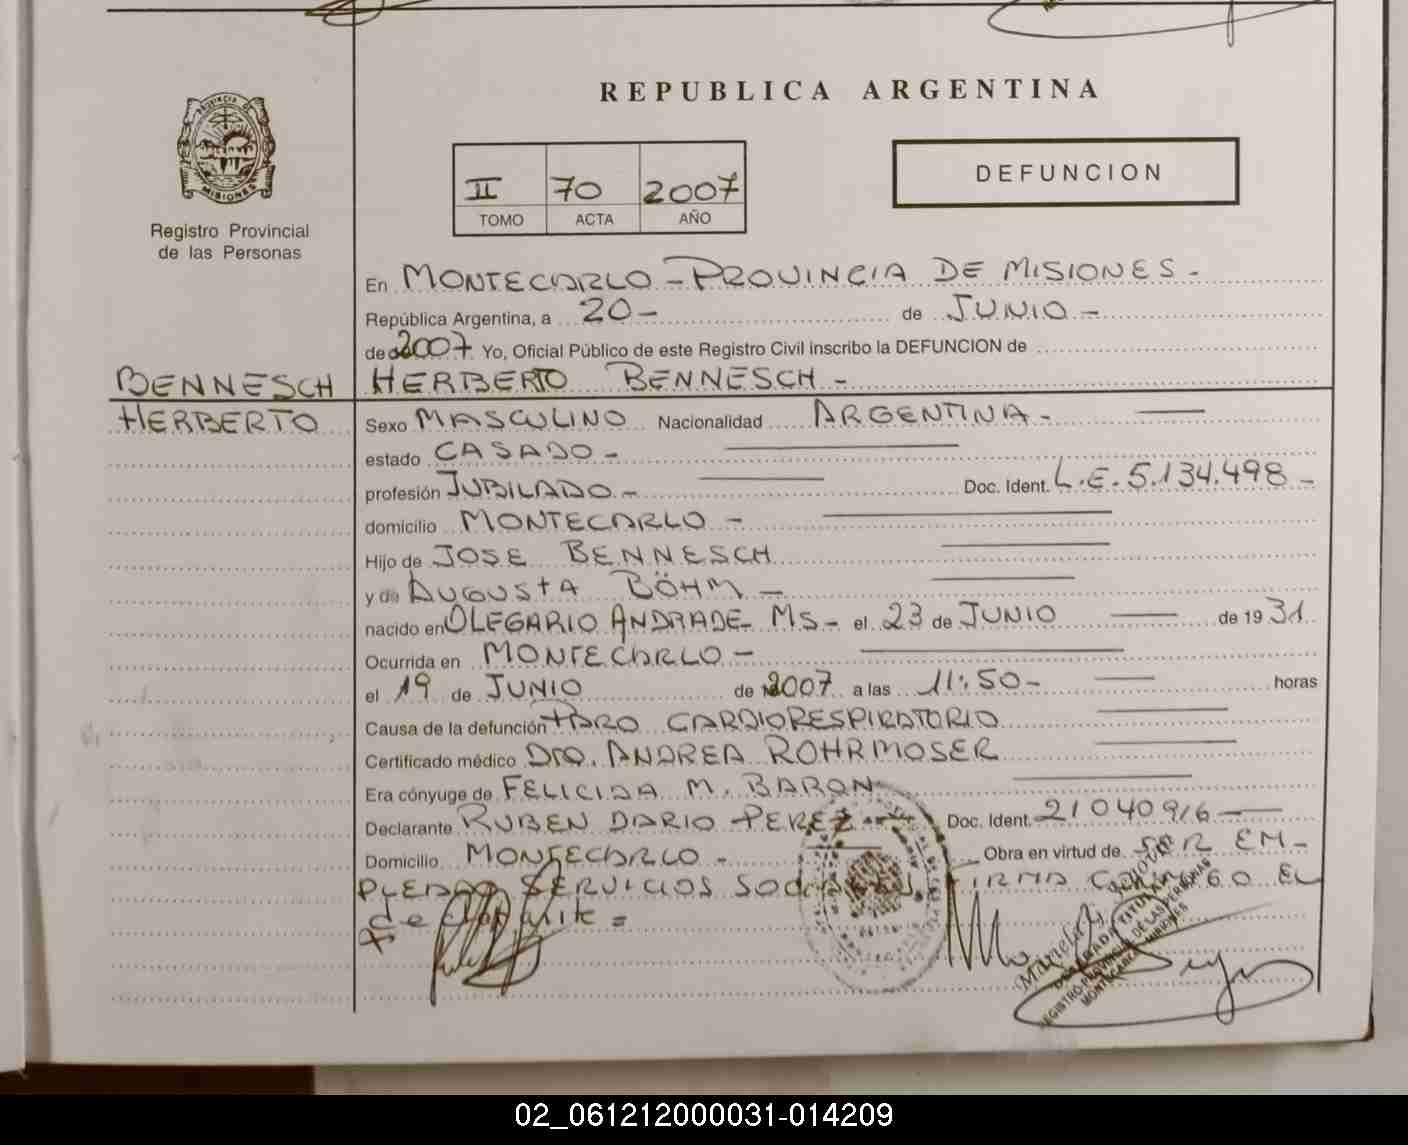 REPUBLICA ARGENTINA
PROVINCIA DE MISIONES
Registro Provincial
de las Personas
II 70 2007
TOMO ACTA AÑO
DEFUNCION
En MONTECARLO - PROVINCIA DE MISIONES -
República Argentina, a 20 - de JUNIO -
de 2007 Yo, Oficial Público de este Registro Civil inscribo la DEFUNCION de
BENNESCH HERBERTO
HERBERTO BENNESCH -
Sexo MASCULINO Nacionalidad ARGENTINA -
estado CASADO -
profesión JUBILADO - Doc. Ident. L.E. 5.134.498 -
domicilio MONTECARLO -
Hijo de JOSE BENNESCH
y de AUGUSTA BÖHM -
nacido en OLEGARIO ANDRADE - MS - el 23 de JUNIO de 1931
Ocurrida en MONTECARLO -
el 19 de JUNIO de 2007 a las 11:50 - horas
Causa de la defunción PARO CARDIORESPIRATORIO
Certificado médico DRA. ANDREA ROHRMOSER
Era cónyuge de FELICIDA M. BARON
Declarante RUBEN DARIO PEREZ - Doc. Ident. 21040916 -
Domicilio MONTECARLO - Obra en virtud de SER EM-
PLEADO SERVICIOS SOCIALES FIRMA CONMIGO EL
declarante =
DELEGADA TITULAR
REGISTRO PROVINCIAL DE LAS PERSONAS
MONTECARLO MISIONES
02_061212000031-014209